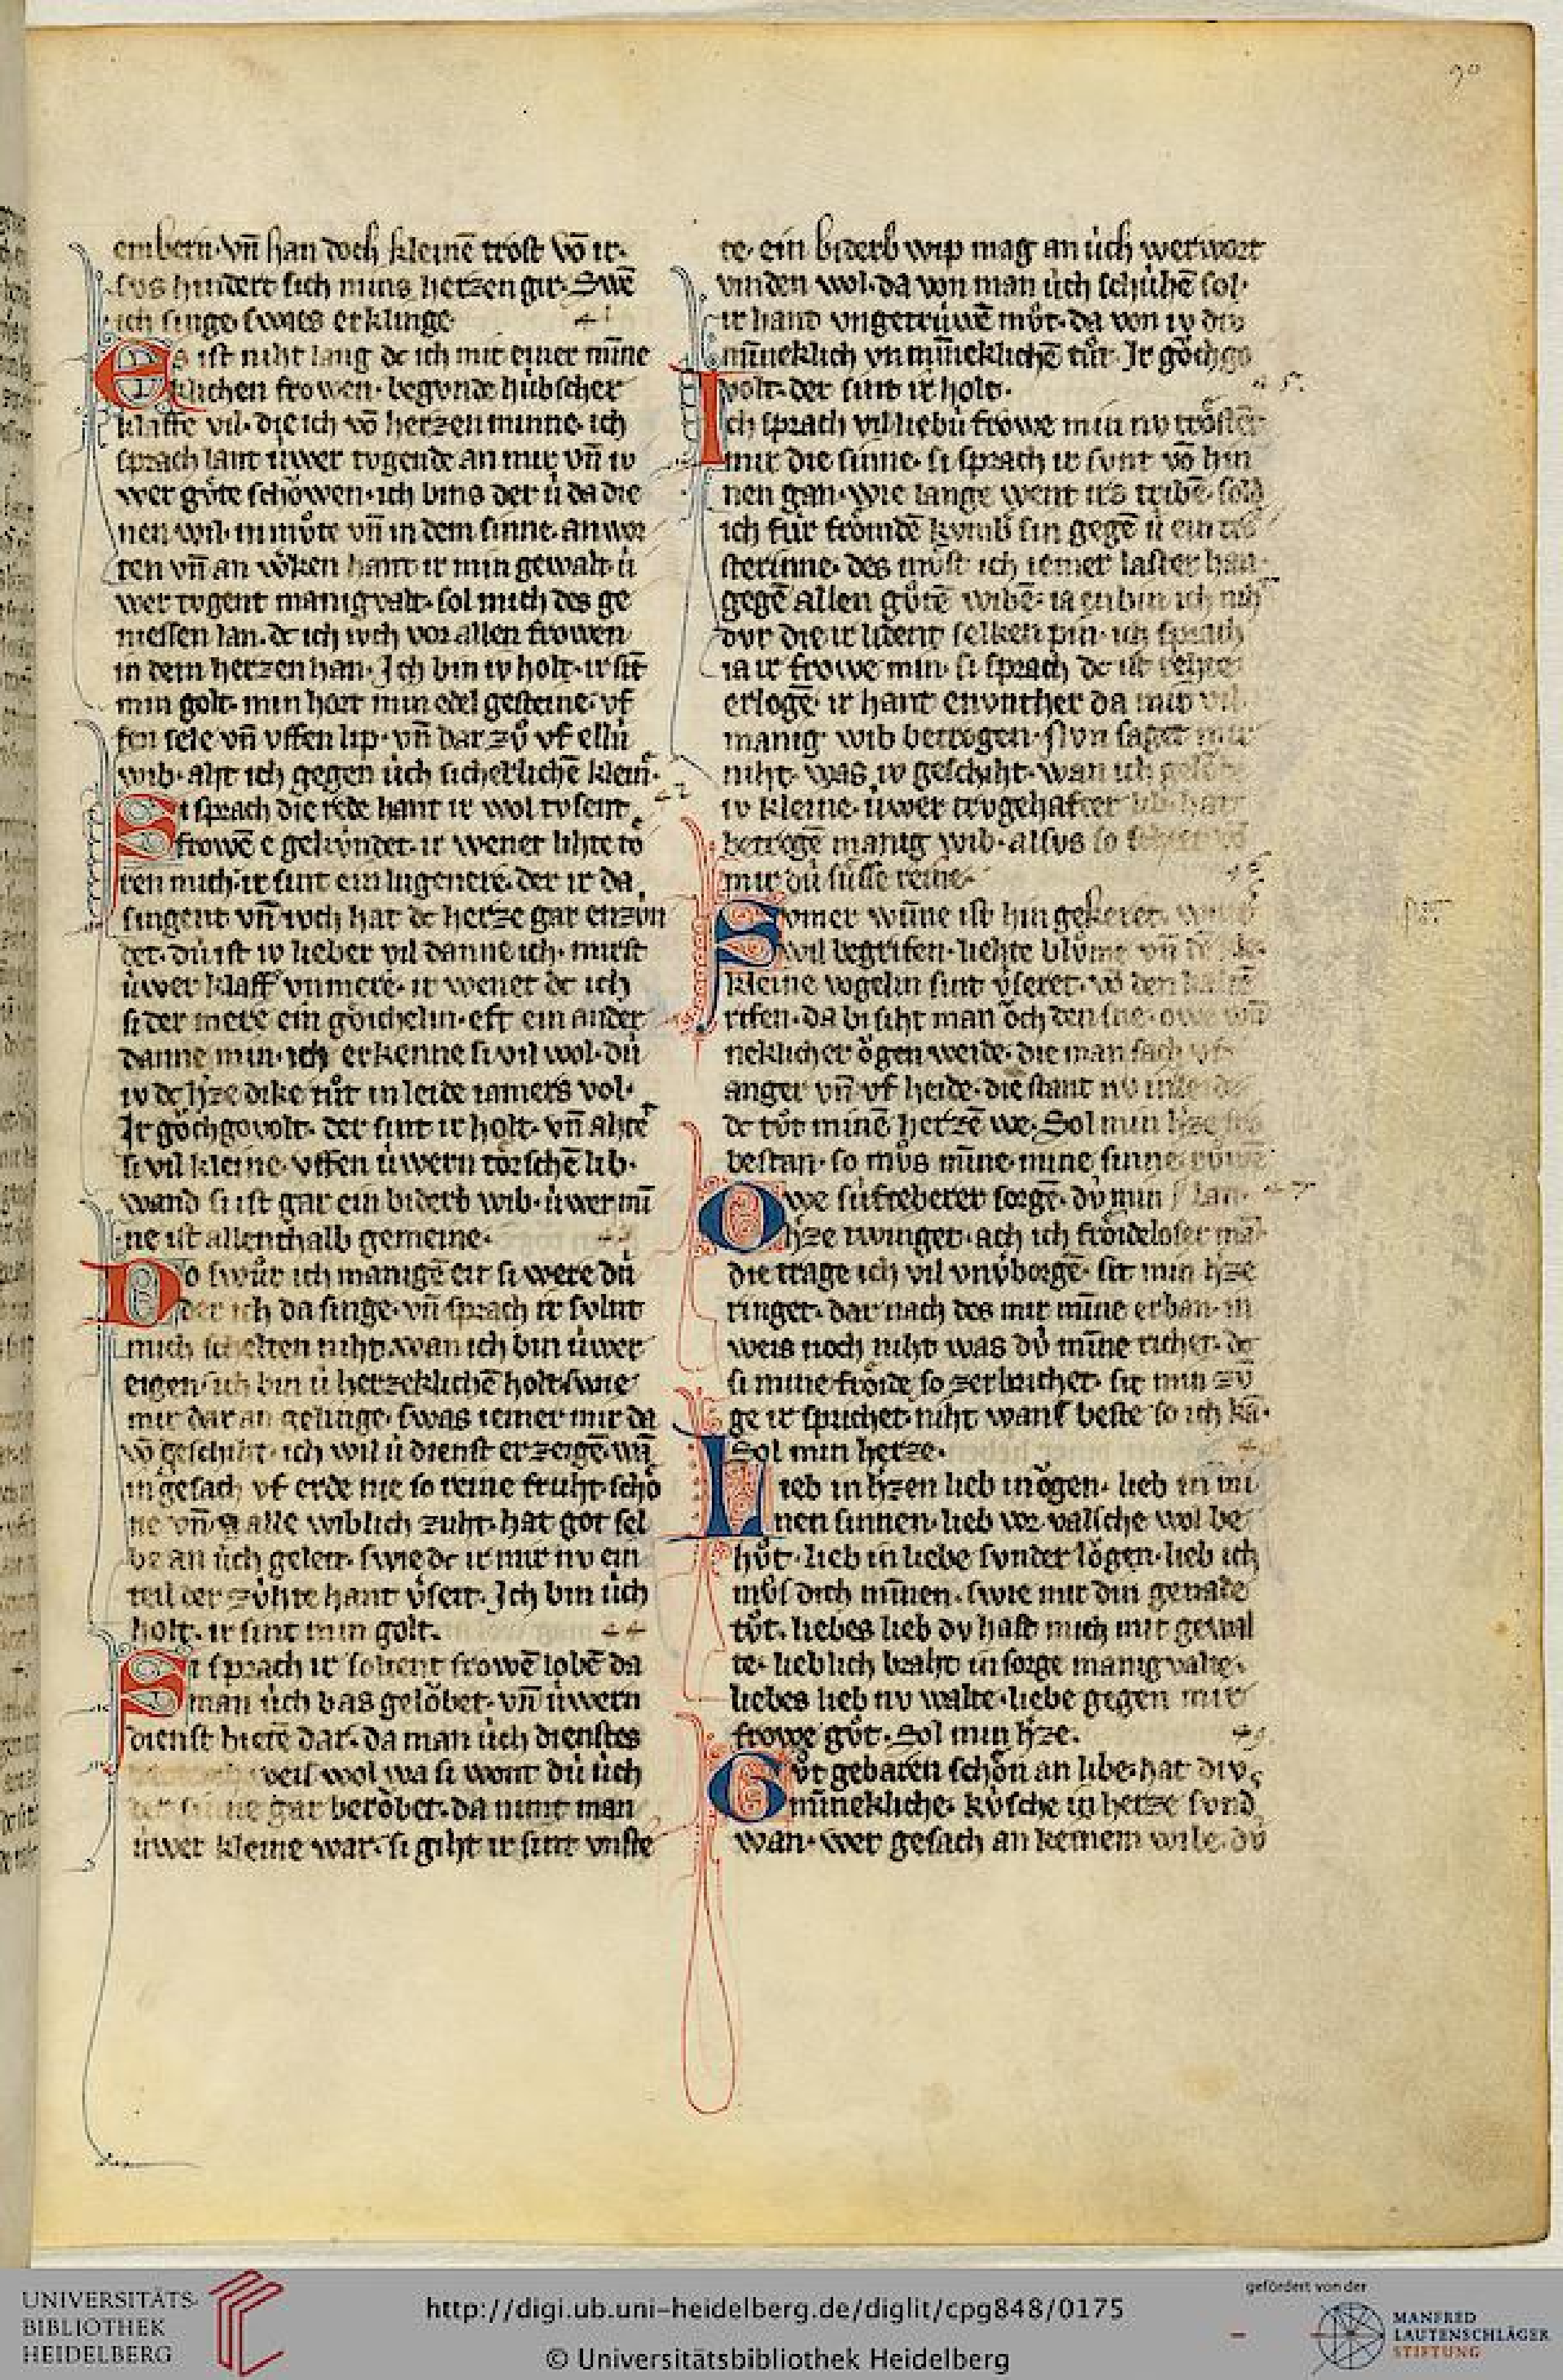 90
embern. vn̄ han doch kleinē trost vō ir.
sus hindert sich mins herzen gir. Swē
ich singe swies erklinge
41
Es ist niht lang dc ich mit einer mīne
klichen frowen. begunde húbscher
klaffe vil. die ich vō herzen minne. ich
sprach lant úwer tugende an mir vn̄ iv
wer gůte schowen. ich bins der ú da die
nen wil. in můte vn̄ in dem sinne. an wor
ten vn̄ an wken hant ir min gewalt. ú
wer tvgent manigvalt. sol mich des ge
niessen lan. dc ich úch vor allen frowen
in dem herzen han. Ich bin iv holt. ir sīt
min golt. min hort min edel gesteine. vf
sen sele vn̄ vffen lip. vn̄ dar zů vf ellú
wib. aht ich gegen úch sicherlichē klein.
42
Si sprach die rede hant ir wol tvsent
frowē e gekúndet. ir wenet lihte tö
ren mich. ir sint ein lugenere. der ir da
singent vn̄ úch hat dc herze gar enzún
det. dú ist iv lieber vil danne ich. mirst
úwer klaff vnmere. ir wenet dc ich
si der mere ein göichelin. eft ein ander
danne min. ich erkenne si vil wol. dú
iv dc hze dike tůt in leide iamers vol.
Ir göchgovolt. der sint ir holt. vn̄ ahte
si vil kleine. vffen úwern törschē lib.
wand si ist gar ein biderb wib. úwer mī
ne ist allenthalb gemeine.
43
Do swůr ich manigē eit si were dú
der ich da singe. vn̄ sprach ir solint
mich schelten niht. wan ich bin úwer
eigen. ich bin ú herzeklichē holt. swie
mir dar an gelinge. swas iemer mir da
vō geschiht. ich wil ú dienst erzeigē. wā
in gesach vf erde nie so reine fruht. schö
ne vn̄ alle wiblich zuht. hat got sel
be an úch geleit. swie dc ir mir nv ein
teil der zúhte hant vseit. Ich bin úch
holt. ir sint min golt.
44
Si sprach ir soltent frowē lobē da
man úch bas gelöbet. vn̄ úwern
dienst bietē dar. da man úch dienstes
weis wol wa si wont dú úch
der sinne gar beröbet. da nimt man
úwer kleine war. si giht ir sint vnste
te. ein biderb wip mag an úch werwort
vinden wol. da von man úch schúhē sol.
ir hant vngetrúwē můt. da von iv dú
mīneklich vnmīneklichē tůt. Ir göchgo
volt. der sint ir holt.
45
Ich sprach vil liebú frowe min nv tröstēt
mir die sinne. si sprach ir sunt vō hin
nen gan. wie lange went irs tribē. sold
ich fúr frömdē kvmb sin gegē ú ein trö
sterinne. des můst ich iemer laster han
gegē allen gůtē wibē. ia enbin ich niht
dvr die ir lident selken pin. ich sprach
ia ir frowe min. si sprach dc ist rehte
erlogē. ir hant envnther da mit vil
manig wib betrogen. nvn saget mir
niht. was iv geschiht. wan ich gelöbe
iv kleine. úwer trvgehafter lib. hat
betrogē manig wib. alsus so
mir dú sússe reine.
46
Svmer wūne ist hin gekeret.
wil begrifen. liehte blůme vn̄
kleine vogelin sint vseret. vō den kaltē
rifen. da bi siht man öch den sne. owe wū
neklicher ögen weide. die man sach vf
anger vn̄ vf heide. die stant nv in leide
dc tůt minē herzē we. Sol min hze
bestan. so můs mīne mine sinne
47
Owe súfteberer sorgē. dú min
hze twinget. ach ich fröideloser mā
die trage ich vil vnvborgē. sit min hze
ringet. dar nach des mir mīne erban. in
weis noch niht was dú mīne richet. dc
si mine fröide so zerbrichet. sit min zv̄
ge ir sprichet. niht wans beste so ich kā.
Sol min herze.
48
Lieb in hzen lieb in ögen. lieb in mi
nen sinnen. lieb vor valsche wol be
hůt. lieb in liebe sunder lögen. lieb ich
můs dich mīnen. swie mir din genade
tůt. liebes lieb dv hast mich mit gewal
te. lieblich braht in sorge manigvalte.
liebes lieb nv walte. liebe gegen mir
frowe gůt. Sol min hze.
49
Gůt gebaren schön an libe. hat dú
mīnekliche. kúsche in herze sund
wan. wer gesach an keinem wibe. dú
UNIVERSITÄTS-
BIBLIOTHEK
HEIDELBERG
http://digi.ub.uni-heidelberg.de/diglit/cpg848/0175
© Universitätsbibliothek Heidelberg
gefördert von der
MANFRED
LAUTENSCHLÄGER
STIFTUNG